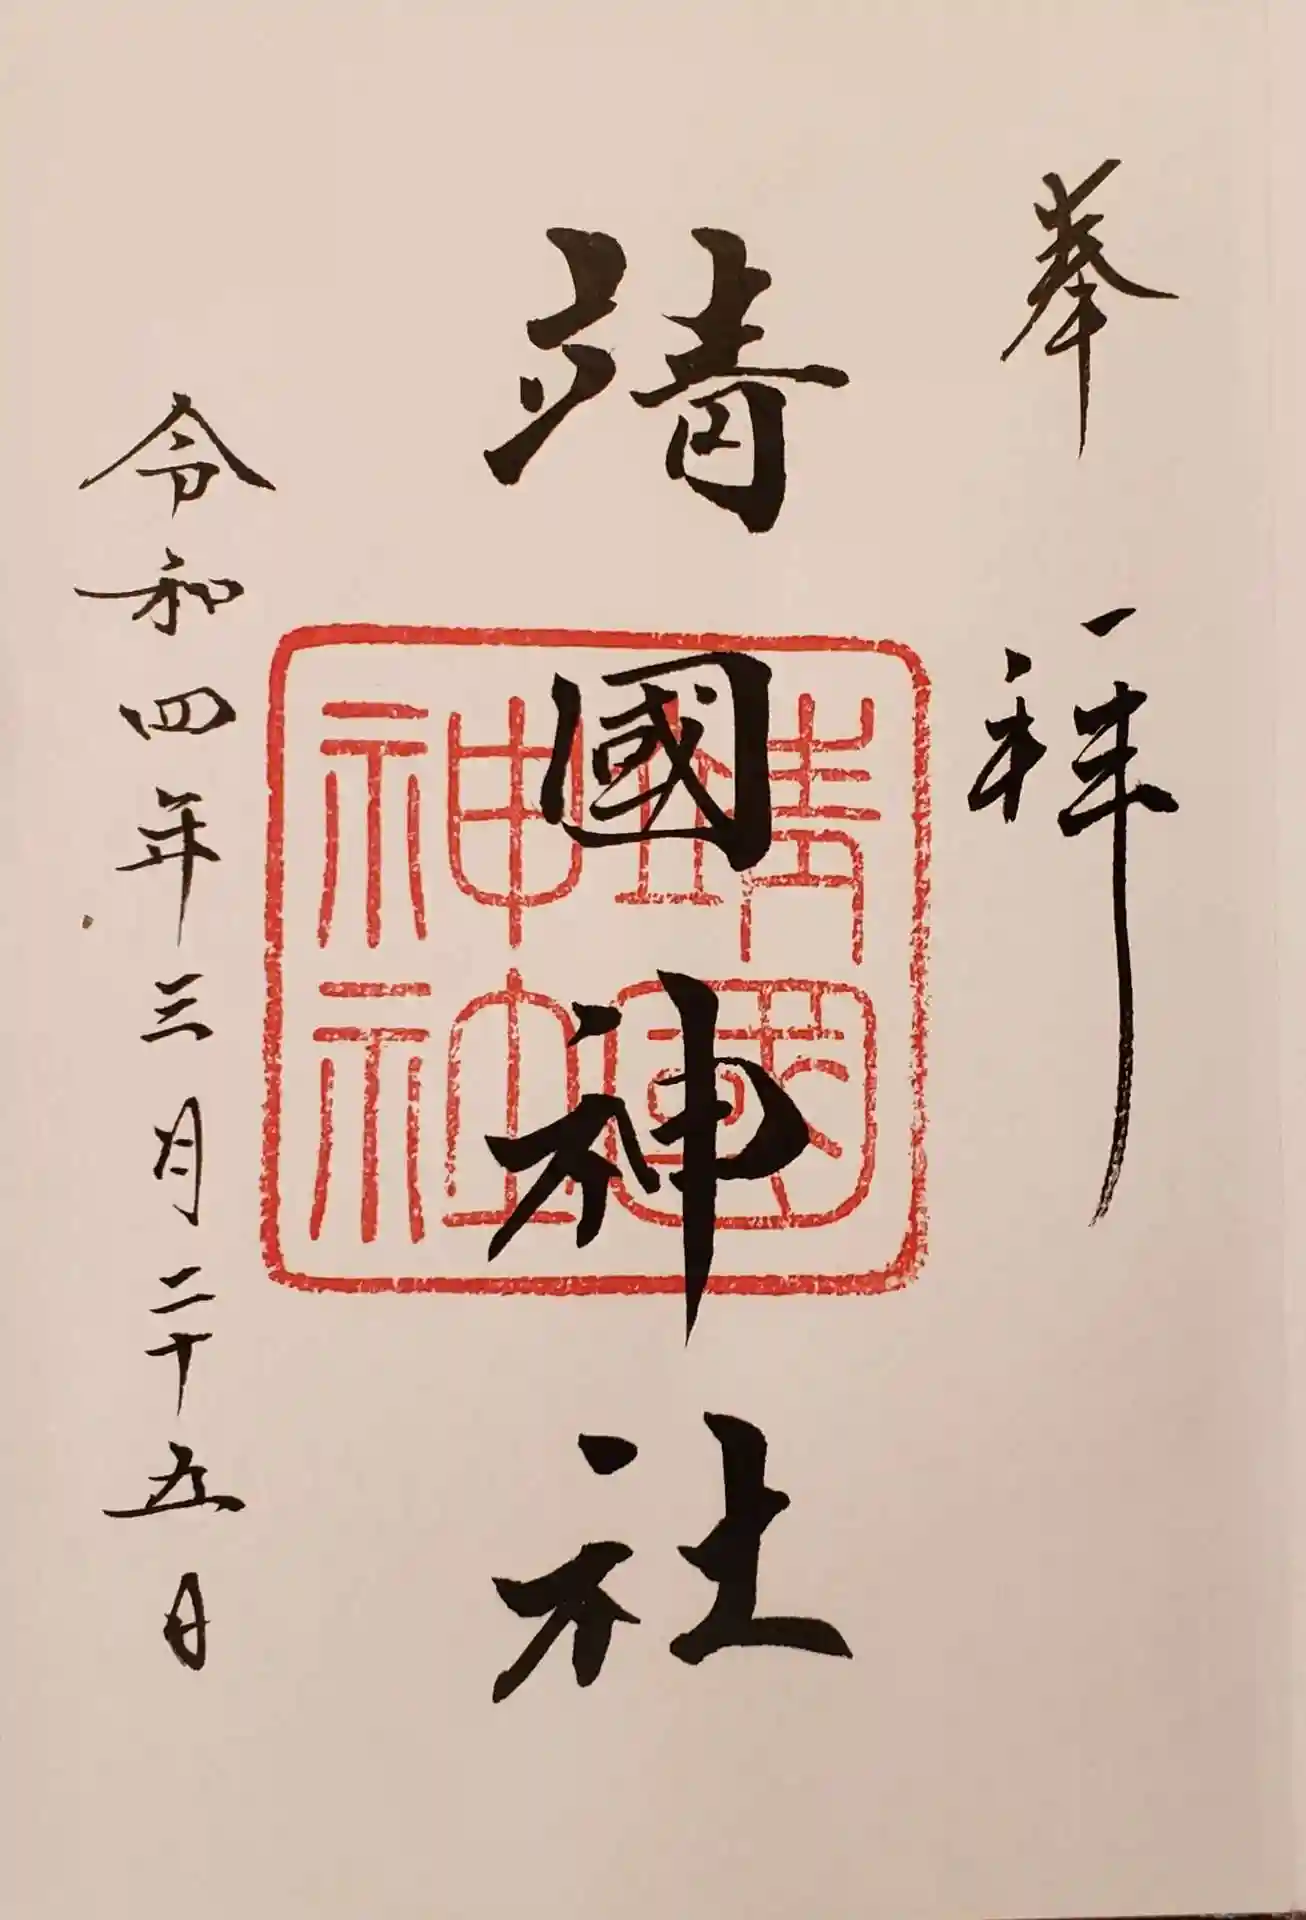 奉拝
靖國神社
靖國
神社
令和四年三月二十五日